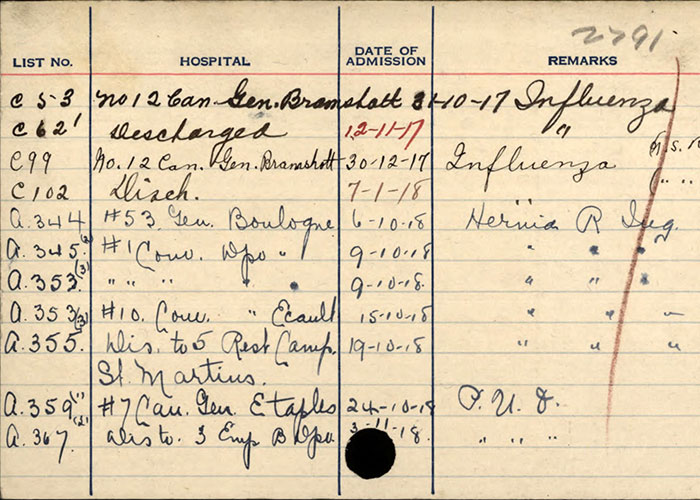 2791
LIST No. HOSPITAL DATE OF ADMISSION REMARKS
C 53 No 12 Can. Gen. Bramshott 31-10-17 Influenza
C 62' Discharged 12-11-17 "
C99 No. 12 Can. Gen. Bramshott 30-12-17 Influenza
C 102 Disch. 7-1-18 " "
A.344 #53 Gen. Boulogne 6-10-18 Hernia R Ing.
A.345.(2) #1 Conv. Dpo " 9-10-18 " " "
A.353(3) " " " " 9-10-18. " " "
A.353(3) #10. Conv. " Ecault 15-10-18 " " "
A.355. Dis. to 5 Rest Camp. 19-10-18 " " "
St. Martins.
A.359(1) #7 Can. Gen. Etaples 24-10-18 P. U. O.
A.367.(2) Dis to. 3 Emp B Dpo 3-11-18. " " "